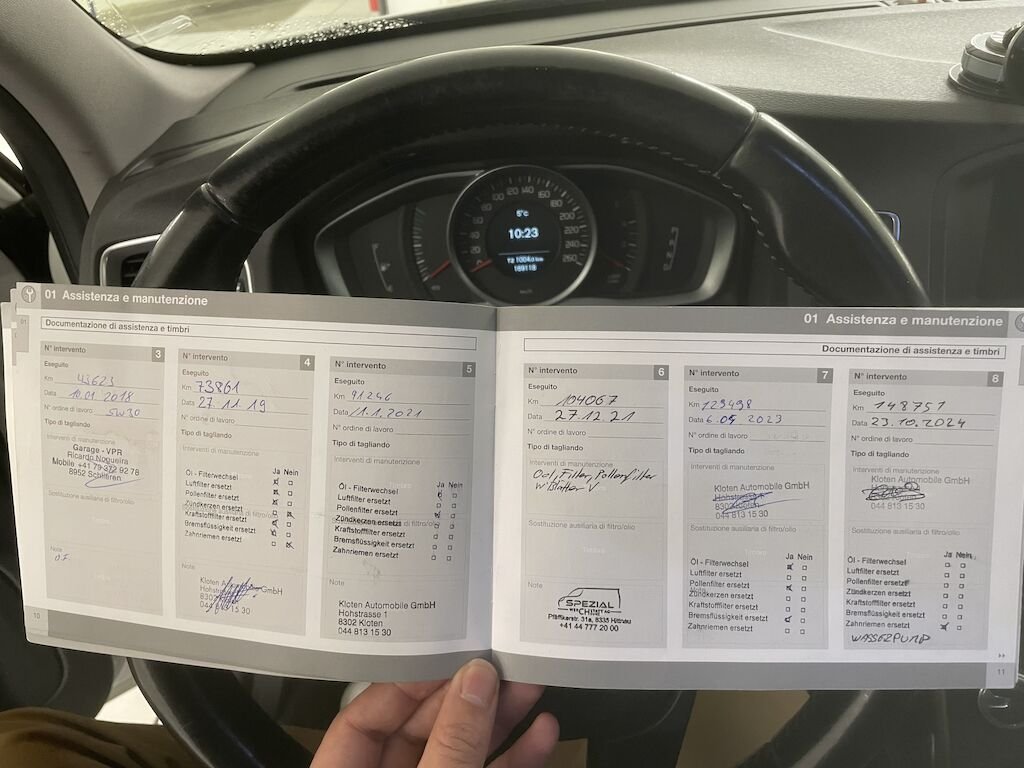 20 40 60 80 100 120 140 160 180 200 220 240 260
5°c
10:23
T2 1004.0 km
189118
01 Assistenza e manutenzione
01
Documentazione di assistenza e timbri
N° intervento 3
Eseguito
Km 43623
Data 10.01 2018
N° ordine di lavoro 5W30
Tipo di tagliando
Interventi di manutenzione
Garage - VPR
Ricardo Nogueira
Mobile +41 79 372 92 78
8952 Schlieren
Sostituzione ausiliaria di filtro/olio
Timbro
Note
Timbro
N° intervento 4
Eseguito
Km 73861
Data 27 11 19
N° ordine di lavoro
Tipo di tagliando
Interventi di manutenzione
Ja Nein
Öl - Filterwechsel
Luftfilter ersetzt
Pollenfilter ersetzt
Zündkerzen ersetzt
Kraftstofffilter ersetzt
Bremsflüssigkeit ersetzt
Zahnriemen ersetzt
Kloten Automobile GmbH
Hohstrasse 1
8302
044 813 15 30
N° intervento 5
Eseguito
Km 91246
Data 11.1.2021
N° ordine di lavoro
Tipo di tagliando
Interventi di manutenzione
Ja Nein
Öl - Filterwechsel
Luftfilter ersetzt
Pollenfilter ersetzt
Zündkerzen ersetzt
Kraftstofffilter ersetzt
Bremsflüssigkeit ersetzt
Zahnriemen ersetzt
Note
Kloten Automobile GmbH
Hohstrasse 1
8302 Kloten
044 813 15 30
10
01 Assistenza e manutenzione
Documentazione di assistenza e timbri
N° intervento 6
Eseguito
Km 104067
Data 27.12.21
N° ordine di lavoro
Tipo di tagliando
Interventi di manutenzione
Oel, Filter, Pollenfilter
W Blätter V
Sostituzione ausiliaria di filtro/olio
Timbro
Note
SPEZIAL
Pfäffikerstr. 31a, 8335 Hittnau
+41 44 777 20 00
N° intervento 7
Eseguito
Km 129498
Data 6.09 2023
N° ordine di lavoro
Tipo di tagliando
Interventi di manutenzione
Kloten Automobile GmbH
Hohstrasse 1
8302 Kloten
044 813 15 30
Sostituzione ausiliaria di filtro/olio
Ja Nein
Öl - Filterwechsel
Luftfilter ersetzt
Pollenfilter ersetzt
Zündkerzen ersetzt
Kraftstofffilter ersetzt
Bremsflüssigkeit ersetzt
Zahnriemen ersetzt
N° intervento 8
Eseguito
Km 148751
Data 23.10.2024
N° ordine di lavoro
Tipo di tagliando
Interventi di manutenzione
Kloten Automobile GmbH
044 813 15 30
Sostituzione ausiliaria di filtro/olio
Ja Nein
Öl - Filterwechsel
Luftfilter ersetzt
Pollenfilter ersetzt
Zündkerzen ersetzt
Kraftstofffilter ersetzt
Bremsflüssigkeit ersetzt
Zahnriemen ersetzt
WASSERPUMP
11